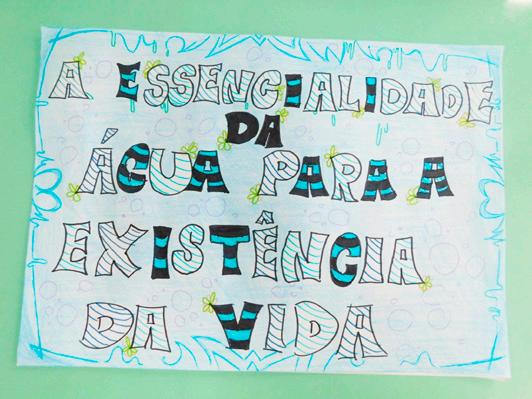 A ESSENCIALIDADE
DA
ÁGUA PARA A
EXISTÊNCIA
DA VIDA